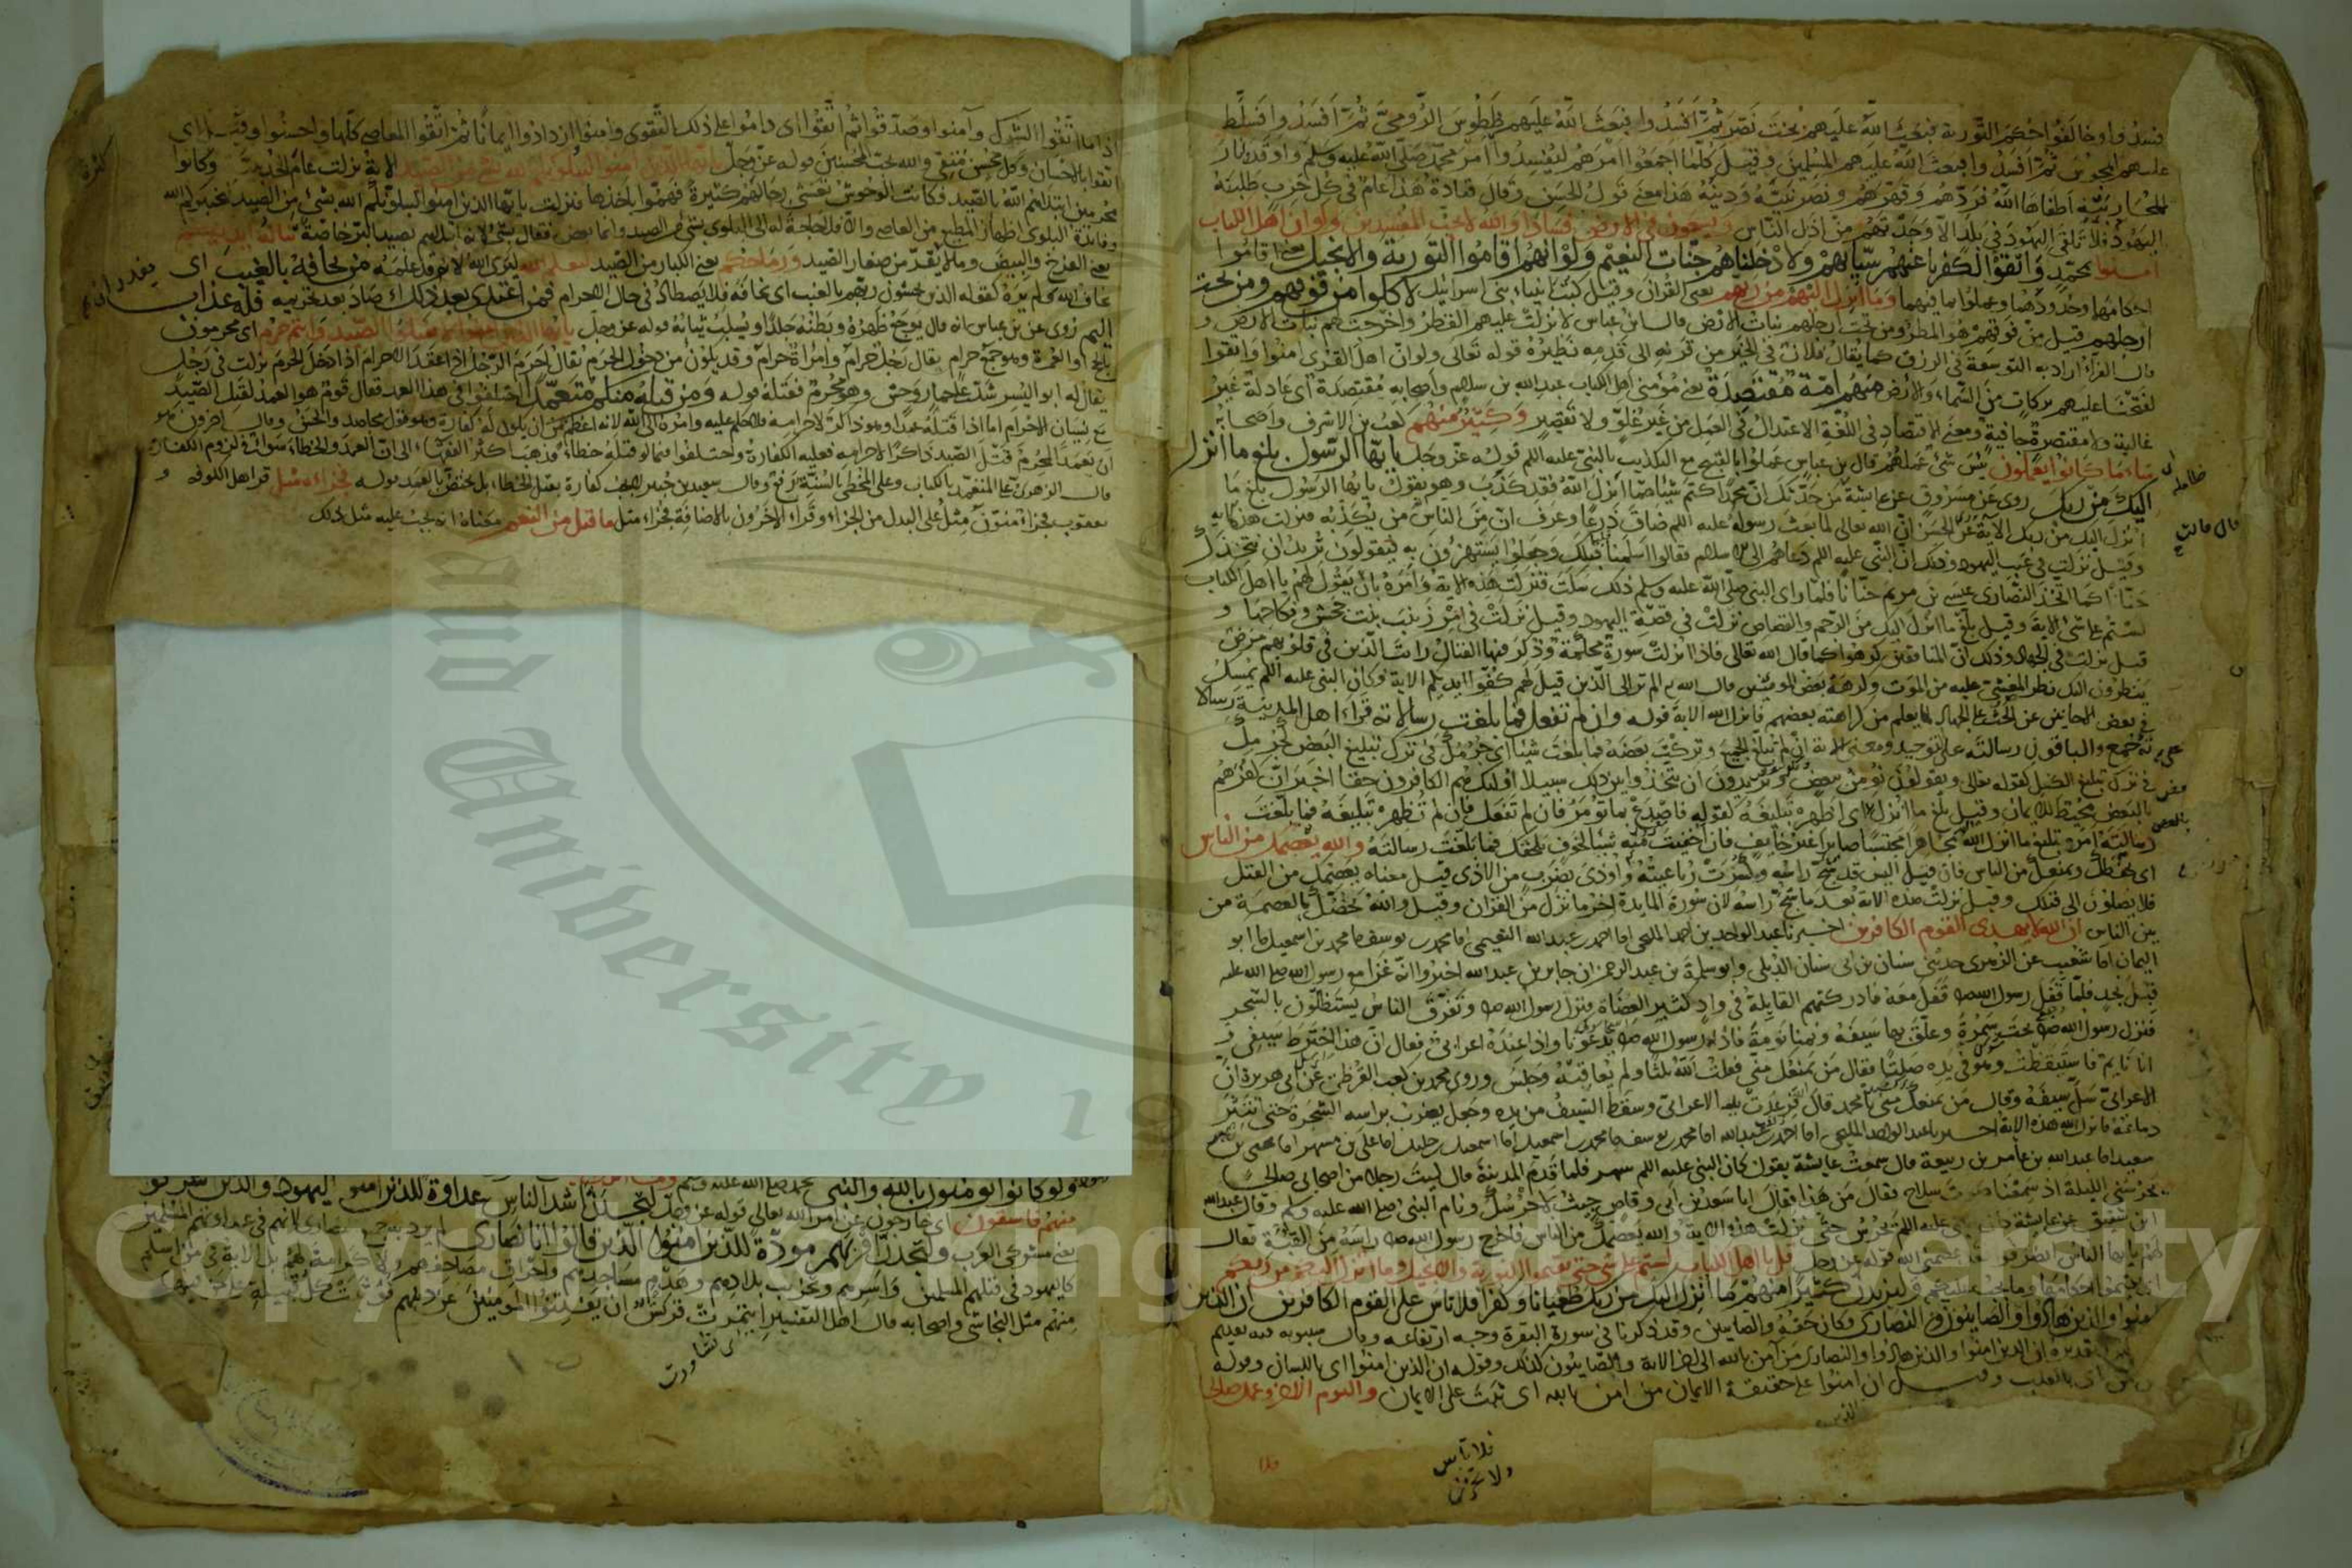 فسدوا وخالفوا حكم التورية فبعث الله عليهم بخت نصر ثم افسدوا فبعث الله عليهم طيطوس الرومي ثم افسدوا فسلط
عليهم المجوس ثم افسدوا فبعث الله عليهم المسلمين وقيل كلما اجمعوا امرهم ليفسدوا امر محمد صلى الله عليه وسلم واوقدوا نار
المحاربة اطفاها الله فردهم وقهرهم ونصر نبيه ودينه هذا معنى قول الحسن وقال قتادة هذا عام في كل حرب طلبته
اليهود فلا تلقى اليهود في بلد الا وجدتهم من اذل الناس ويسعون في الارض فسادا والله لا يحب المفسدين ولو ان اهل الكتاب
امنوا بمحمد واتقوا الكفر لكفرنا عنهم سياتهم ولادخلناهم جنات النعيم ولو انهم اقاموا التورية والانجيل يعنى اقاموا
احكامهما وحدودهما وعملوا بما فيهما وما انزل اليهم من ربهم يعنى القران وقيل كتب انبياء بنى اسرائيل لاكلوا من فوقهم ومن تحت
ارجلهم قيل من فوقهم هو المطر ومن تحت ارجلهم نبات الارض قال ابن عباس لانزلت عليهم القطر واخرجت لهم نبات الارض و
قال الفراء اراد به التوسعة في الرزق كما يقال فلان في الخير من قرنه الى قدمه نظيره قوله تعالى ولو ان اهل القرى امنوا واتقوا
لفتحنا عليهم بركات من السماء والارض منهم امة مقتصدة يعنى مؤمنى اهل الكتاب عبد الله بن سلام واصحابه مقتصدة اى عادلة غير
غالية ولا مقتصرة جافية ومعنى الاقتصاد في اللغة الاعتدال في العمل من غير غلو ولا تقصير وكثير منهم كعب بن الاشرف واصحابه
ساء ما كانوا يعملون بئس شئ عملهم قال بن عباس عملوا بالقبيح مع التكذيب بالنبي عليه السلم قوله عز وجل يا ايها الرسول بلغ ما انزل
اليك من ربك روى عن مسروق عن عايشة من حدثك ان محمدا كتم شيئا مما انزل الله فقد كذب وهو يقول يا ايها الرسول بلغ ما
انزل اليك من ربك الاية عن الحسن ان الله تعالى لما بعث رسوله عليه السلم ضاق ذرعا وعرف ان من الناس من يكذبه فنزلت هذه الاية
وقيل نزلت في عيب اليهود وذلك ان النبي عليه السلم دعاهم الى الاسلام فقالوا اسلمنا قبلك وجعلوا يستهزون به فيقولون تريد ان نتخذك
حنانا كما اتخذ النصارى عيسى بن مريم حنانا فلما راى النبي صلى الله عليه وسلم ذلك سكت فنزلت هذه الاية وامره بان يقول لهم يا اهل الكتاب
لستم على شئ الاية وقيل بلغ ما انزل اليك من الرجم والقصاص نزلت في قصة اليهود وقيل نزلت في امر زينب بنت جحش ونكاحها و
قيل نزلت في الجهاد وذلك ان المنافقين كرهوا كما قال الله تعالى فاذا انزلت سورة محكمة وذكر فيها القتال رايت الذين في قلوبهم مرض
ينظرون اليك نظر المغشى عليه من الموت وكرهه بعض المومنين قال الله الم تر الى الذين قيل لهم كفوا ايديكم الاية فكان النبي عليه السلم يمسك
في بعض الاحايين عن الحث على الجهاد لما يعلم من كراهته بعضهم فانزل الله الاية قوله وان لم تفعل فما بلغت رسالاته قراء اهل المدينة رسالا
ته جمع والباقون رسالته على التوحيد ومعنى الاية ان لم تبلغ الجميع وتركت بعضه فما بلغت شيئا اى جرمك في ترك تبليغ البعض كجرمك
في ترك تبليغ الكل كقوله تعالى ويقولون نومن ببعض ونكفر ببعض ويريدون ان يتخذوا بين ذلك سبيلا اولئك هم الكافرون حقا اخبر ان كفرهم
بالبعض محيط للايمان وقيل بلغ ما انزل اليك اى اظهر تبليغه كقوله فاصدع بما تؤمر فان لم تفعل فان لم تظهر تبليغه فما بلغت
رسالته امره بتبليغ ما انزل اليه مجاهرا محتسبا صابرا غير خايف فان اخفيت منه شيئا لخوف يلحقك فما بلغت رسالته والله يعصمك من الناس
اى يحفظك ويمنعك من الناس فان قيل اليس قد شج راسه وكسرت رباعيته واوذى بضرب من الاذى قيل معناه يعصمك من القتل
فلا يصلون الى قتلك وقيل نزلت هذه الاية بعد ما شج راسه لان سورة المايدة اخر ما نزل من القران وقيل والله يخصك بالعصمة من
بين الناس ان الله لا يهدى القوم الكافرين اخبرنا عبد الواحد بن احمد المليحى انا احمد بن عبد الله النعيمى انا محمد بن يوسف نا محمد بن اسمعيل نا ابو
اليمان انا شعيب عن الزهرى حدثنى سنان بن ابى سنان الديلى وابو سلمة بن عبد الرحمن ان جابر بن عبد الله اخبروا انه غزا مع رسول الله صلى الله عليه
قبل نجد فلما قفل رسول الله قفل معه فادركتهم القايلة في واد كثير العضاة فنزل رسول الله وتفرق الناس يستظلون بالشجر
فنزل رسول الله تحت سمرة وعلق بها سيفه ونمنا نومة فاذا رسول الله يدعونا واذا عنده اعرابى فقال ان هذا اخترط سيفى و
انا نايم فاستيقظت وهو في يده صلتا فقال من يمنعك منى فقلت الله ثلثا ولم يعاقبه وجلس وروى محمد بن كعب القرظى عن ابى هريرة ان
الاعرابى سل سيفه وقال من يمنعك منى يا محمد قال الله فرعدت يد الاعرابى وسقط السيف من يده وجعل يضرب براسه الشجرة حتى انتثر
دماغه فانزل الله هذه الاية اخبرنا عبد الواحد المليحى انا احمد بن عبد الله انا محمد بن يوسف نا محمد بن اسمعيل انا اسمعيل بن خليل انا على بن مسهر انا يحيى بن
سعيد انا عبد الله بن عامر بن ربيعة قال سمعت عايشة يقول كان النبي عليه السلم سهر فلما قدم المدينة قال ليت رجلا من اصحابى صالحا
يحرسنى الليلة اذ سمعنا صوت سلاح فقال من هذا فقال انا سعد بن ابى وقاص جيت لاحرسك ونام النبي صلى الله عليه وسلم وقال عبد الله
ابن شقيق عن عايشة كان النبي عليه السلم يحرس حتى نزلت هذه الاية والله يعصمك من الناس فاخرج رسول الله راسه من القبة فقال
لهم يا ايها الناس انصرفوا فقد عصمنى الله قوله عز وجل قل يا اهل الكتاب لستم على شئ حتى تقيموا التورية والانجيل وما انزل اليكم من ربكم
اى تقيموا احكامهما وما يجب عليكم وليزيدن كثيرا منهم ما انزل اليك من ربك طغيانا وكفرا فلا تاس على القوم الكافرين ان الذين
امنوا والذين هادوا والصابئون والنصارى وكان حقه والصابين وقد ذكرنا في سورة البقرة وجه ارتفاعه وقال سيبويه فيه تقديم
تقديره ان الذين امنوا والذين هادوا والنصارى من آمن بالله الى اخر الاية والصابئون كذلك وقوله ان الذين امنوا اى باللسان وقوله
اى بالقلب وقيل ان امنوا على حقيقة الايمان من امن بالله اى ثبت على الايمان واليوم الاخر وعمل صالحا
فلا تأس
ولا تحزن
قال قالت
اذا ما اتقوا الشرك وآمنوا وصدقوا ثم اتقوا اى داموا على ذلك التقوى وامنوا ازدادوا ايمانا ثم اتقوا المعاصى كلها واحسنوا وقيل اى
اتقوا بالاحسان وكل محسن متق والله يحب المحسنين قوله عز وجل يا ايها الذين امنوا ليبلونكم الله بشئ من الصيد الاية نزلت عام الحديبية وكانوا
محرمين ابتلاهم الله بالصيد فكانت الوحوش تغشى رحالهم كثيرة فهموا باخذها فنزلت يا ايها الذين امنوا ليبلونكم الله بشئ من الصيد
وفائدة البلوى اظهار المطيع من العاصى والا فلا حاجة له الى البلوى بشئ من الصيد وانما بعض فقال بشئ لانه ابتلاهم بصيد البر خاصة تناله ايديكم
يعنى الفرخ والبيض وما لا يقدر من صغار الصيد ورماحكم يعنى الكبار من الصيد ليعلم الله ليرى الله لانه قد علمه من يخافه بالغيب اى
يخاف الله ولم يره كقوله الذين يخشون ربهم بالغيب اى يخافه فلا يصطاد في حال الاحرام فمن اعتدى بعد ذلك اى صاد بعد تحريمه فله عذاب
اليم روى عن بن عباس انه قال يوجع ظهره وبطنه جلدا ويسلب ثيابه قوله عز وجل يا ايها الذين امنوا لا تقتلوا الصيد وانتم حرم اى محرمون
بالحج او العمرة وهو جمع حرام يقال رجل حرام وامراة حرام وقد يكون من دخول الحرم يقال احرم الرجل اذا عقد الاحرام اذا دخل الحرم نزلت في رجل
يقال له ابو اليسر شد على حمار وحش وهو محرم فقتله قوله ومن قتله منكم متعمدا اختلفوا في هذا العمد فقال قوم هو العمد لقتل الصيد
مع نسيان الاحرام اما اذا قتله عمدا وهو ذاكر لاحرامه فلا حكم عليه وامره الى الله لانه اعظم من ان يكون له كفارة وهو قول مجاهد والحسن وقال اخرون هو
ان يعمد المحرم قتل الصيد ذاكرا لاحرامه فعليه الكفارة واختلفوا فيما لو قتله خطاء فذهب اكثر الفقهاء الى ان العمد والخطاء سواء في لزوم الكفارة
قال الزهرى على المتعمد بالكتاب وعلى المخطى بالسنة وقال سعيد بن جبير لا يجب كفارة بقتل الخطاء بل يختص بالعمد قوله فجزاء مثل قرا اهل الكوفة و
يعقوب فجزاء منون مثل على البدل من الجزاء وقراء الاخرون بالاضافة فجزاء مثل ما قتل من النعم معناه انه يجب عليه مثل ذلك
ولو كانوا يومنون بالله والنبى محمد صلى الله عليه وسلم
منهم فاسقون اى خارجون عن امر الله تعالى قوله عز وجل لتجدن اشد الناس عداوة للذين امنوا اليهود والذين اشركوا
يعنى مشركى العرب ولتجدن اقربهم مودة للذين امنوا الذين قالوا انا نصارى لم يرد به جميع النصارى لانهم في عداوتهم المسلمين
كاليهود في قتلهم المسلمين واسرهم وتخريب بلادهم وهدم مساجدهم واحراق مصاحفهم ولا كرامة لهم بل الاية في من اسلم
منهم مثل النجاشى واصحابه قال اهل التفسير ايتمرت قريش ان يفتنوا المومنين عن دينهم فوثبت كل قبيلة على من فيها
اى تشاورت
Copyright © King Saud University